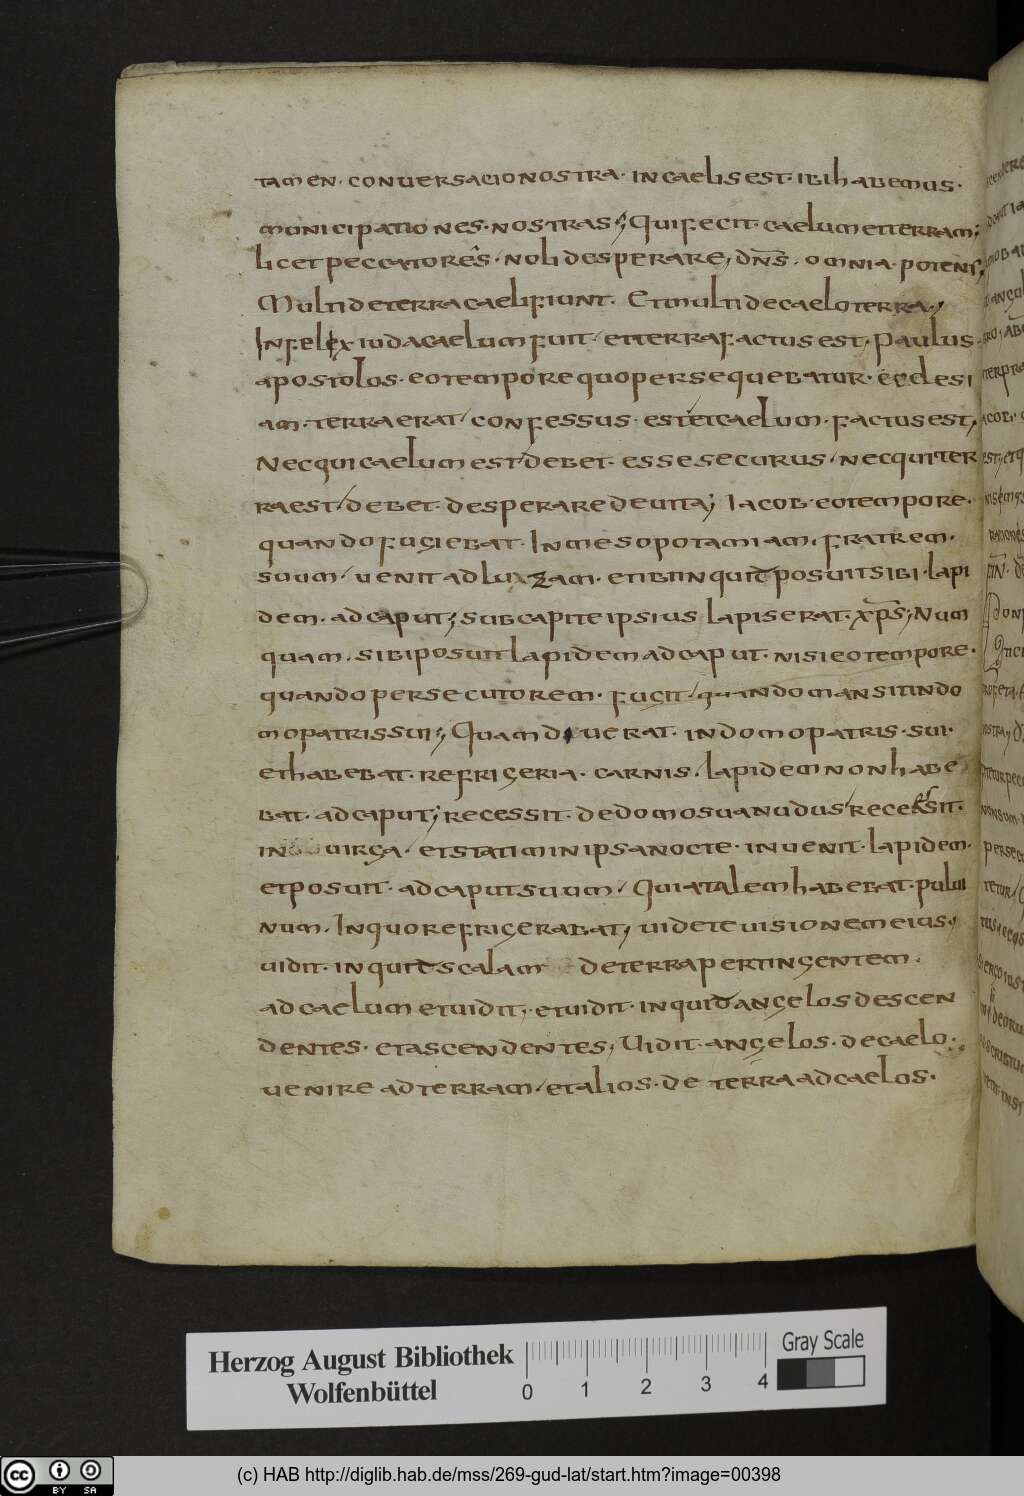 tamen· conuersacio nostra· in caelis est· ibi habemus·
municipationes· nostras; Qui fecit· caelum et terram;
licet peccatores· noli desperare, dn̄s· omnia· potens,
Multi de terra caeli fiunt· Et multi de caelo terra·,
Infelex iuda caelum fuit/ et terra factus est, paulus·
apostolos· eo tempore quo persequebatur· ecclesi
am· terra erat/ confessus· est et caelum· factus est,
Nec qui caelum est/ debet· esse securus/ nec qui ter
ra est/ debet· desperare de uita; Iacob· eo tempore·
quando fugiebat· In mesopotamiam· fratrem·
suum/ uenit ad luzam· et ibi inquid posuit sibi· lapi
dem· ad caput; sub capite ipsius lapis erat· xp̄s; Num
quam· sibi posuit lapidem ad caput· nisi eo tempore·
quando persecutorem· fugit/ quando mansit in do
mo patris sui; Quamdiuerat· in domo patris· sui·
et habebat· refrigeria· carnis· lapidem non habe
bat· ad caput; recessit· de domo sua nudus/ recessit·
in uirga· et statim in ipsa nocte· inuenit· lapidem·
et posuit· ad caput suum/ Quia talem habebat· pului
num· In quo refrigerabat, uidete uisionem eius·,
uidit· inquid scalam de terra pertingentem·
ad caelum et uidit,· et uidit· inquid angelos descen
dentes· et ascendentes, Uidit· angelos· de caelo·
uenire ad terram/ et alios· de terra ad caelos·
Herzog August Bibliothek
Wolfenbüttel
0 1 2 3 4
Gray Scale
cc BY SA
(c) HAB http://diglib.hab.de/mss/269-gud-lat/start.htm?image=00398